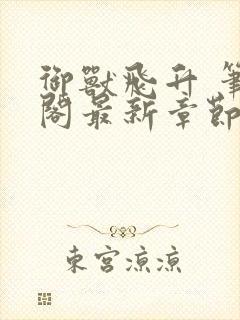 御獸飛升 筆
閣最新章節
東宮涼涼